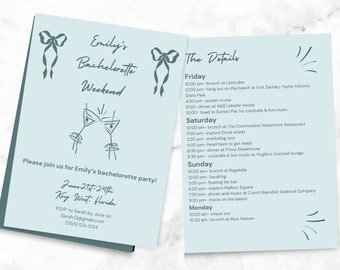 Emily's
Bachelorette
Weekend
Please join us for Emily's bachelorette party!
June 21st-24th
Key West, Florida
RSVP to Sarah by June 1st
(555) 123-1234
The Details
Friday
10:00 am- brunch at Latitudes
12:00 pm - hang out on the beach at Fort Zachary Taylor Historic
State Park
6:30 pm- sunset cruise
8:00 pm - dinner at A&B Lobster House
10:00 pm - head to Sunset Pier for cocktails & live music
Saturday
10:00 am- brunch at The Commodore Waterfront Restaurant
12:00 pm- explore Duval street
2:00 pm- snorkeling tour
5:00 pm- head back to get ready
8:30 pm- dinner at Prime Steakhouse
11:30 pm- cocktails & live music at Virgilio's Cocktail lounge
Sunday
10:00 am- brunch at Bagatelle
12:00 pm- kayaking
2:00 pm- floating tiki bar
6:00 pm- explore Mallory Square
7:30 pm- dinner and music at Conch Republic Seafood Company
9:30 pm- movie on the beach
Monday
10:00 am- check out
10:30 am- brunch at Blue Heaven